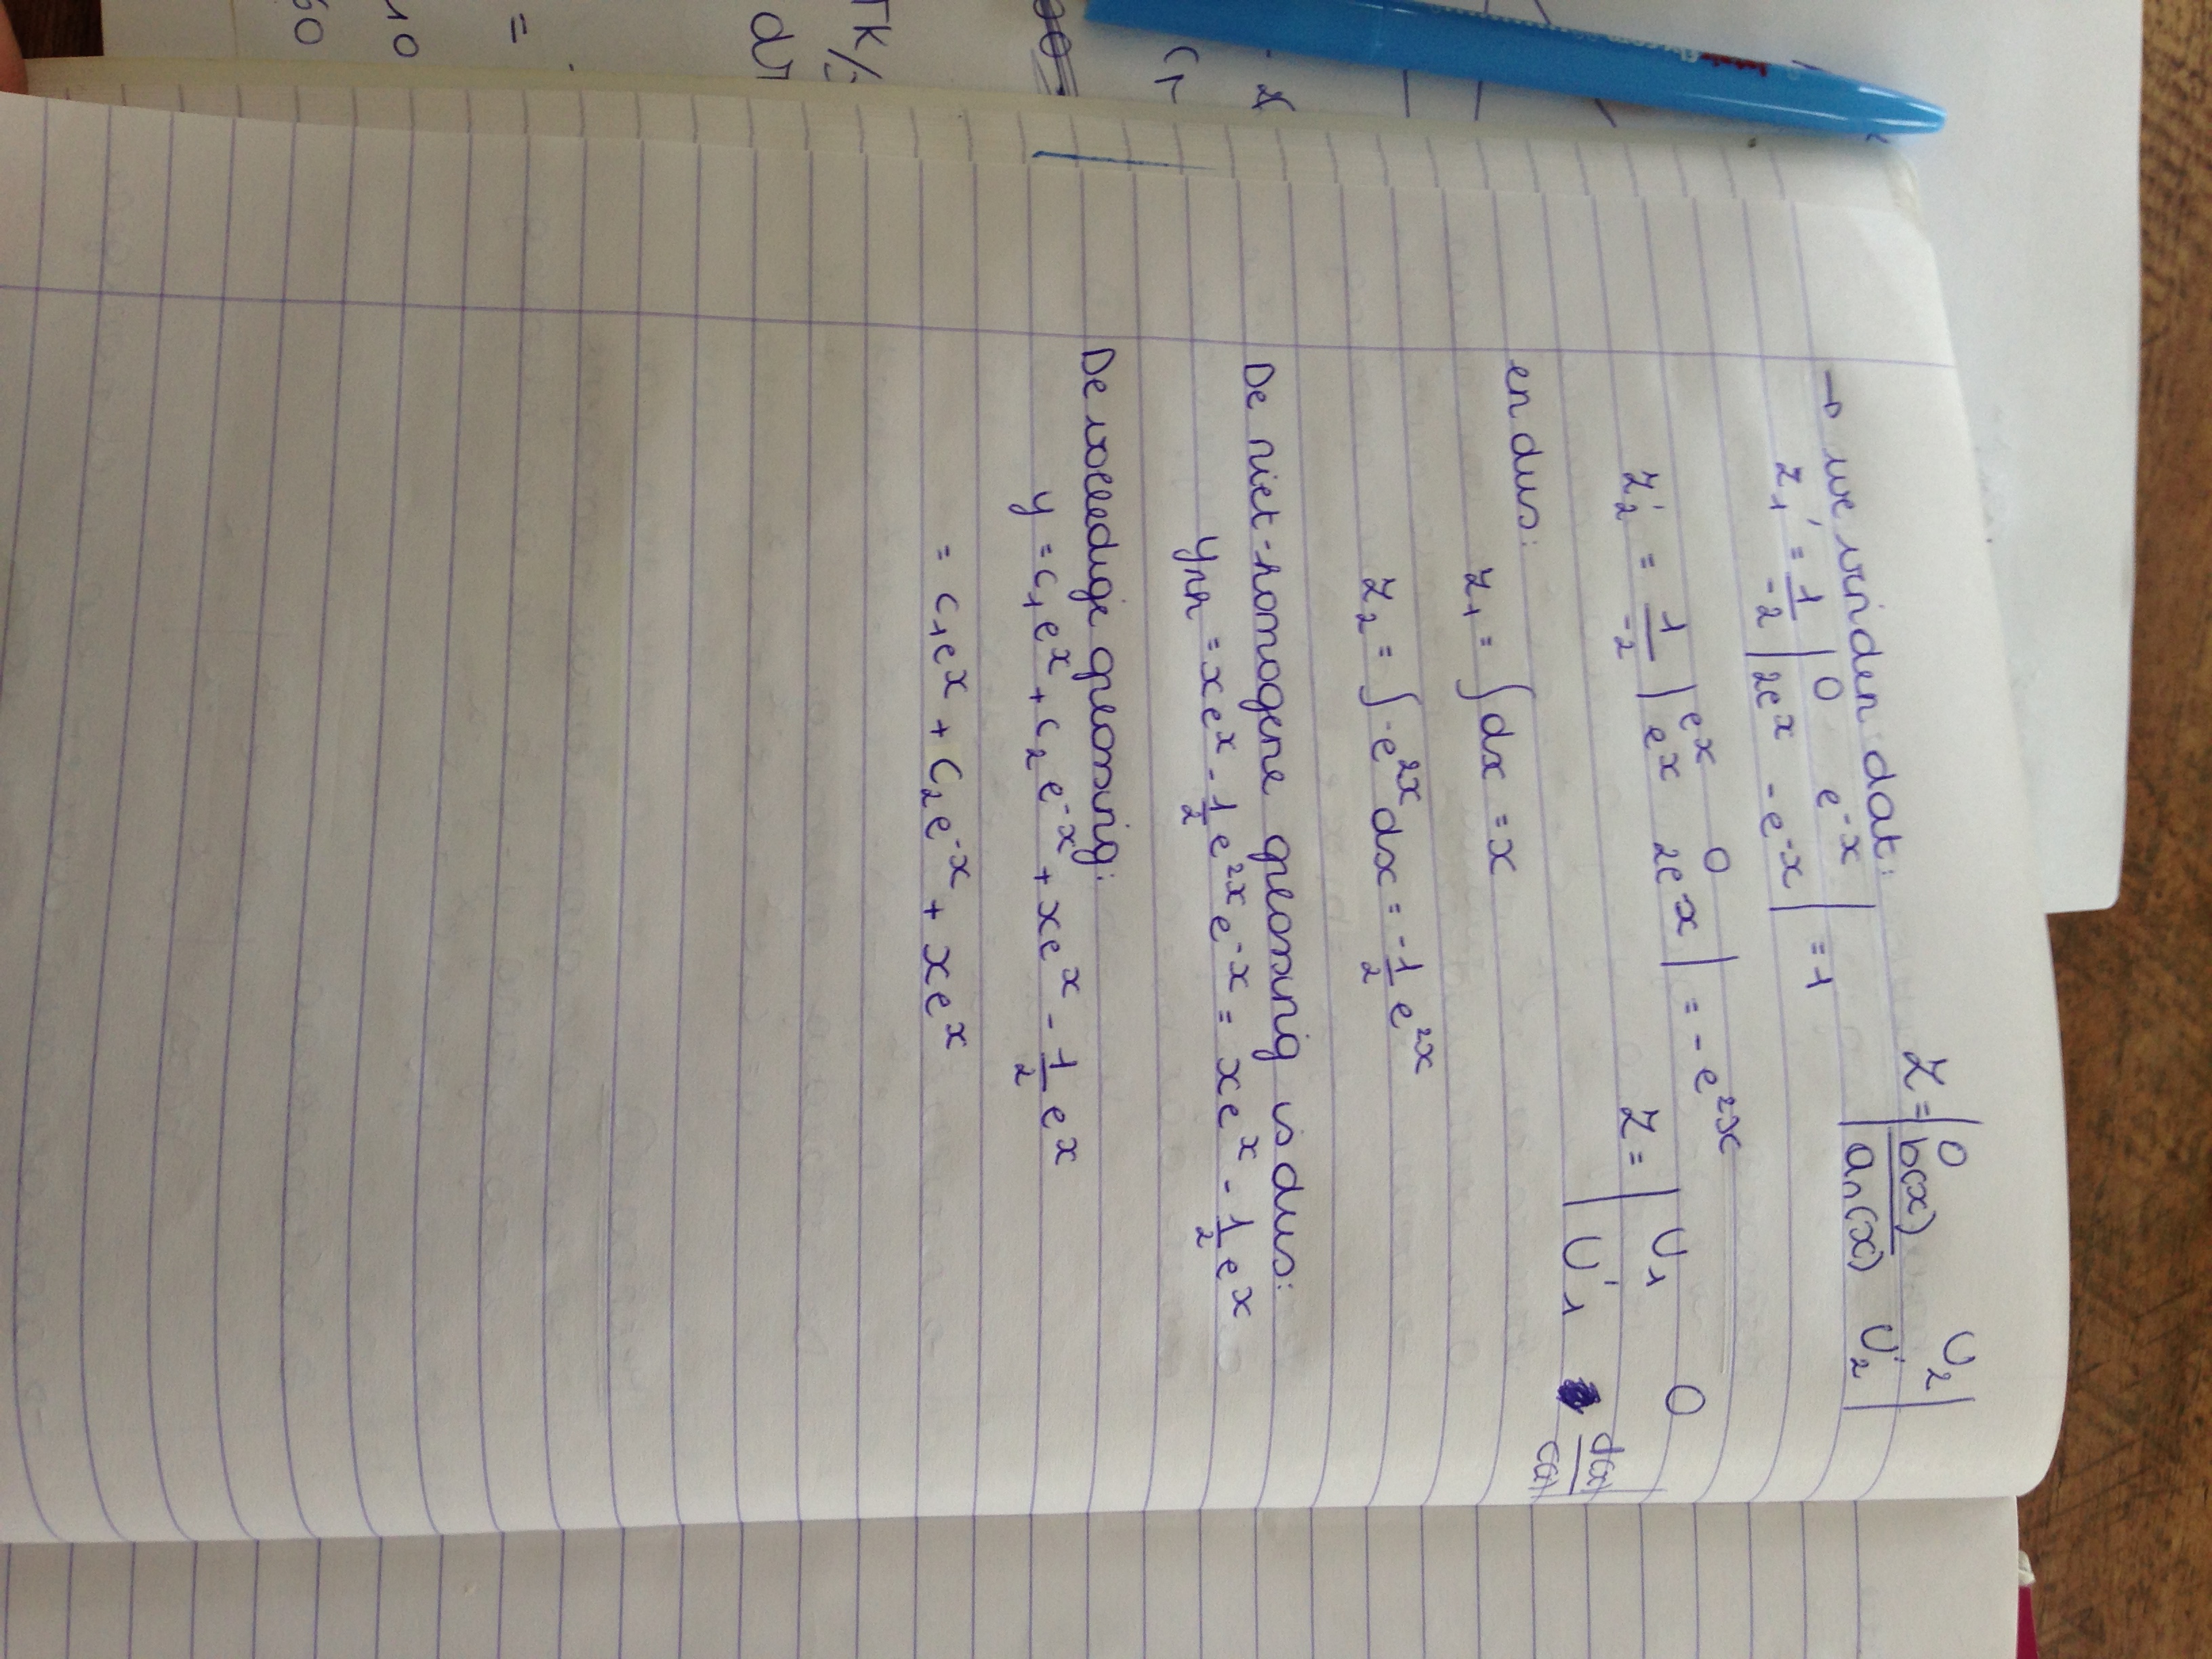 → we vinden dat:
z₁' = 1/-2 | 0 e^-x ; 2e^x -e^-x | = 1
Z = | 0 U₂ ; b(x)/aₙ(x) U₂' |
z₂' = 1/-2 | e^x 0 ; e^x 2e^x | = -e^2x
Z = | U₁ 0 ; U₁' d(x)/c(x) |
en dus:
z₁ = ∫dx = x
z₂ = ∫-e^2x dx = -1/2 e^2x
De niet-homogene oplossing is dus:
yₙₕ = xe^x - 1/2 e^2x e^-x = xe^x - 1/2 e^x
De volledige oplossing:
y = c₁e^x + c₂e^-x + xe^x - 1/2 e^x
= c₁e^x + c₂e^-x + xe^x
TK/
=
10
60